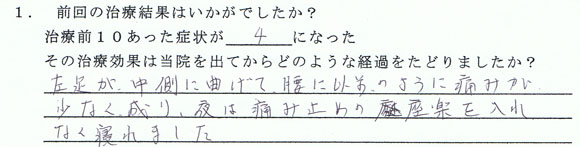 1. 前回の治療結果はいかがでしたか？
治療前10あった症状が 4 になった
その治療効果は当院を出てからどのような経過をたどりましたか？
左足が、中側に曲げて、腰に以前のように痛みが
少なく成り、夜は痛み止めの座楽を入れ
なく寝れました